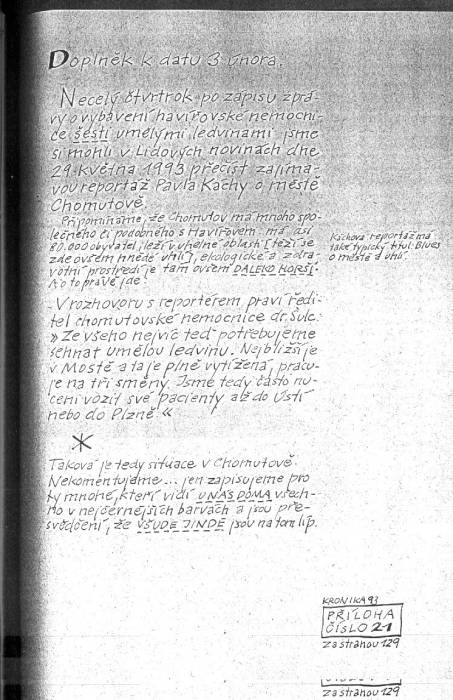 Doplněk k datu 3 února.
Necelý čtvrtrok po zápisu zprá-
vy o vybavení havířovské nemocni-
ce šesti umělými ledvinami jsme
si mohli v Lidových novinách dne
29. května 1993 přečíst zajíma-
vou reportáž Pavla Káchy o městě
Chomutově.
Připomínáme, že Chomutov má mnoho spo-
lečného či podobného s Havířovem: má asi
80.000 obyvatel, leží v uhelné oblasti (těží se
zde ovšem hnědé uhlí), ekologické a zdra-
votní prostředí je tam ovšem DALEKO HORŠÍ.
A o to právě jde!
Káchova reportáž má
také typický titul: Blues
o městě a uhlí.
V rozhovoru s reportérem praví ředi-
tel chomutovské nemocnice dr. Šulc:
» Ze všeho nejvíc teď potřebujeme
sehnat umělou ledvinu. Nejbližší je
v Mostě a ta je plně vytížená, pracu-
je na tři směny. Jsme tedy často nu-
ceni vozit své pacienty až do Ústí
nebo do Plzně «
Taková je tedy situace v Chomutově.
Nekomentujeme... jen zapisujeme pro
ty mnohé, kteří vidí U NÁS DOMA všech-
no v nejčernějších barvách a jsou pře-
svědčeni, že VŠUDE JINDE jsou na tom líp.
KRONIKA 93
PŘÍLOHA
ČÍSLO 21
za stranou 129
za stranou 129